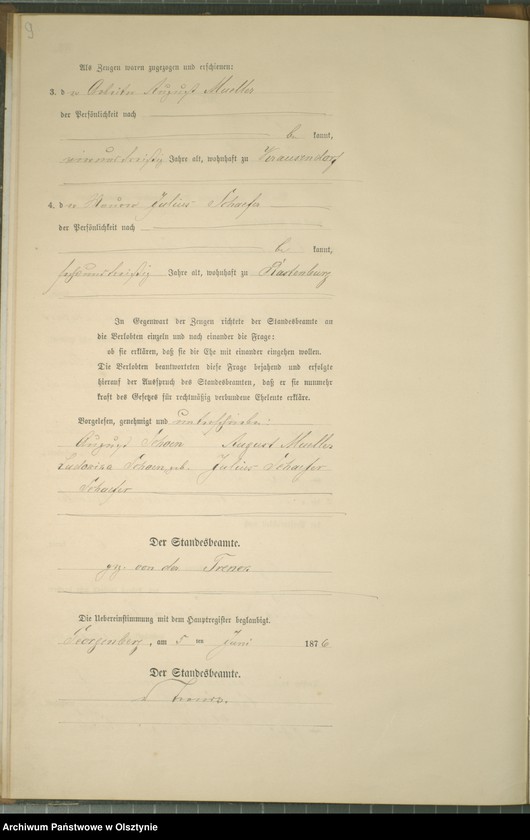 9
Als Zeugen waren zugezogen und erschienen:
3. d er Arbeiter August Mueller
der Persönlichkeit nach
be kannt,
Jahre alt, wohnhaft zu Krausendorf
4. d er Maurer Julius Schaefer
der Persönlichkeit nach
be kannt,
sechsunddreißig Jahre alt, wohnhaft zu Rastenburg
In Gegenwart der Zeugen richtete der Standesbeamte an
die Verlobten einzeln und nach einander die Frage:
ob sie erklären, daß sie die Ehe mit einander eingehen wollen.
Die Verlobten beantworteten diese Frage bejahend und erfolgte
hierauf der Ausspruch des Standesbeamten, daß er sie nunmehr
kraft des Gesetzes für rechtmäßig verbundene Eheleute erkläre.
Vorgelesen, genehmigt und unterschrieben:
August Schoen August Mueller
Schoen geb. Julius Schaefer
Schaefer
Der Standesbeamte.
gez. von der Trenck
Die Uebereinstimmung mit dem Hauptregister beglaubigt.
Georgenberg, am 5 ten Juni 1876
Der Standesbeamte.
v Trenck.
Archiwum Państwowe w Olsztynie